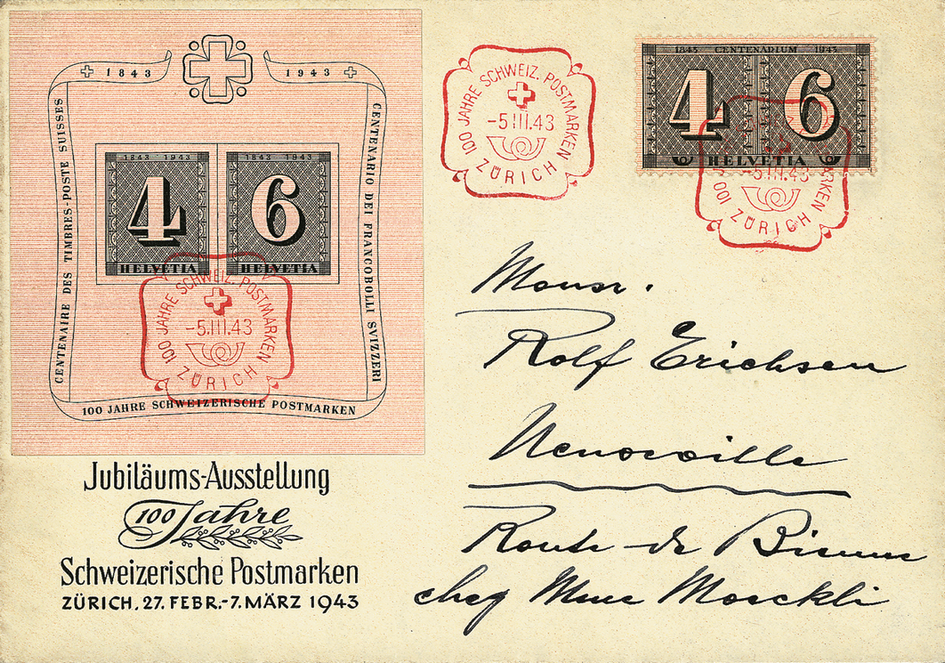 1843 1943
CENTENAIRE DES TIMBRES-POSTE SUISSES
CENTENARIO DEI FRANCOBOLLI SVIZZERI
100 JAHRE SCHWEIZERISCHE POSTMARKEN
1843 1943
4
HELVETIA
1843 1943
6
HELVETIA
100 JAHRE SCHWEIZ. POSTMARKEN
-5.III.43
ZÜRICH
Jubiläums-Ausstellung
100 Jahre
Schweizerische Postmarken
ZÜRICH, 27. FEBR.-7. MÄRZ 1943
100 JAHRE SCHWEIZ. POSTMARKEN
-5.III.43
ZÜRICH
1843 CENTENARIUM 1943
4 6
HELVETIA
100 POSTMARKEN
-5.III.43
ZÜRICH
Monsr.
Rolf Erichsen
Neuveville
Route de Bienne
chez Mme Moeckli